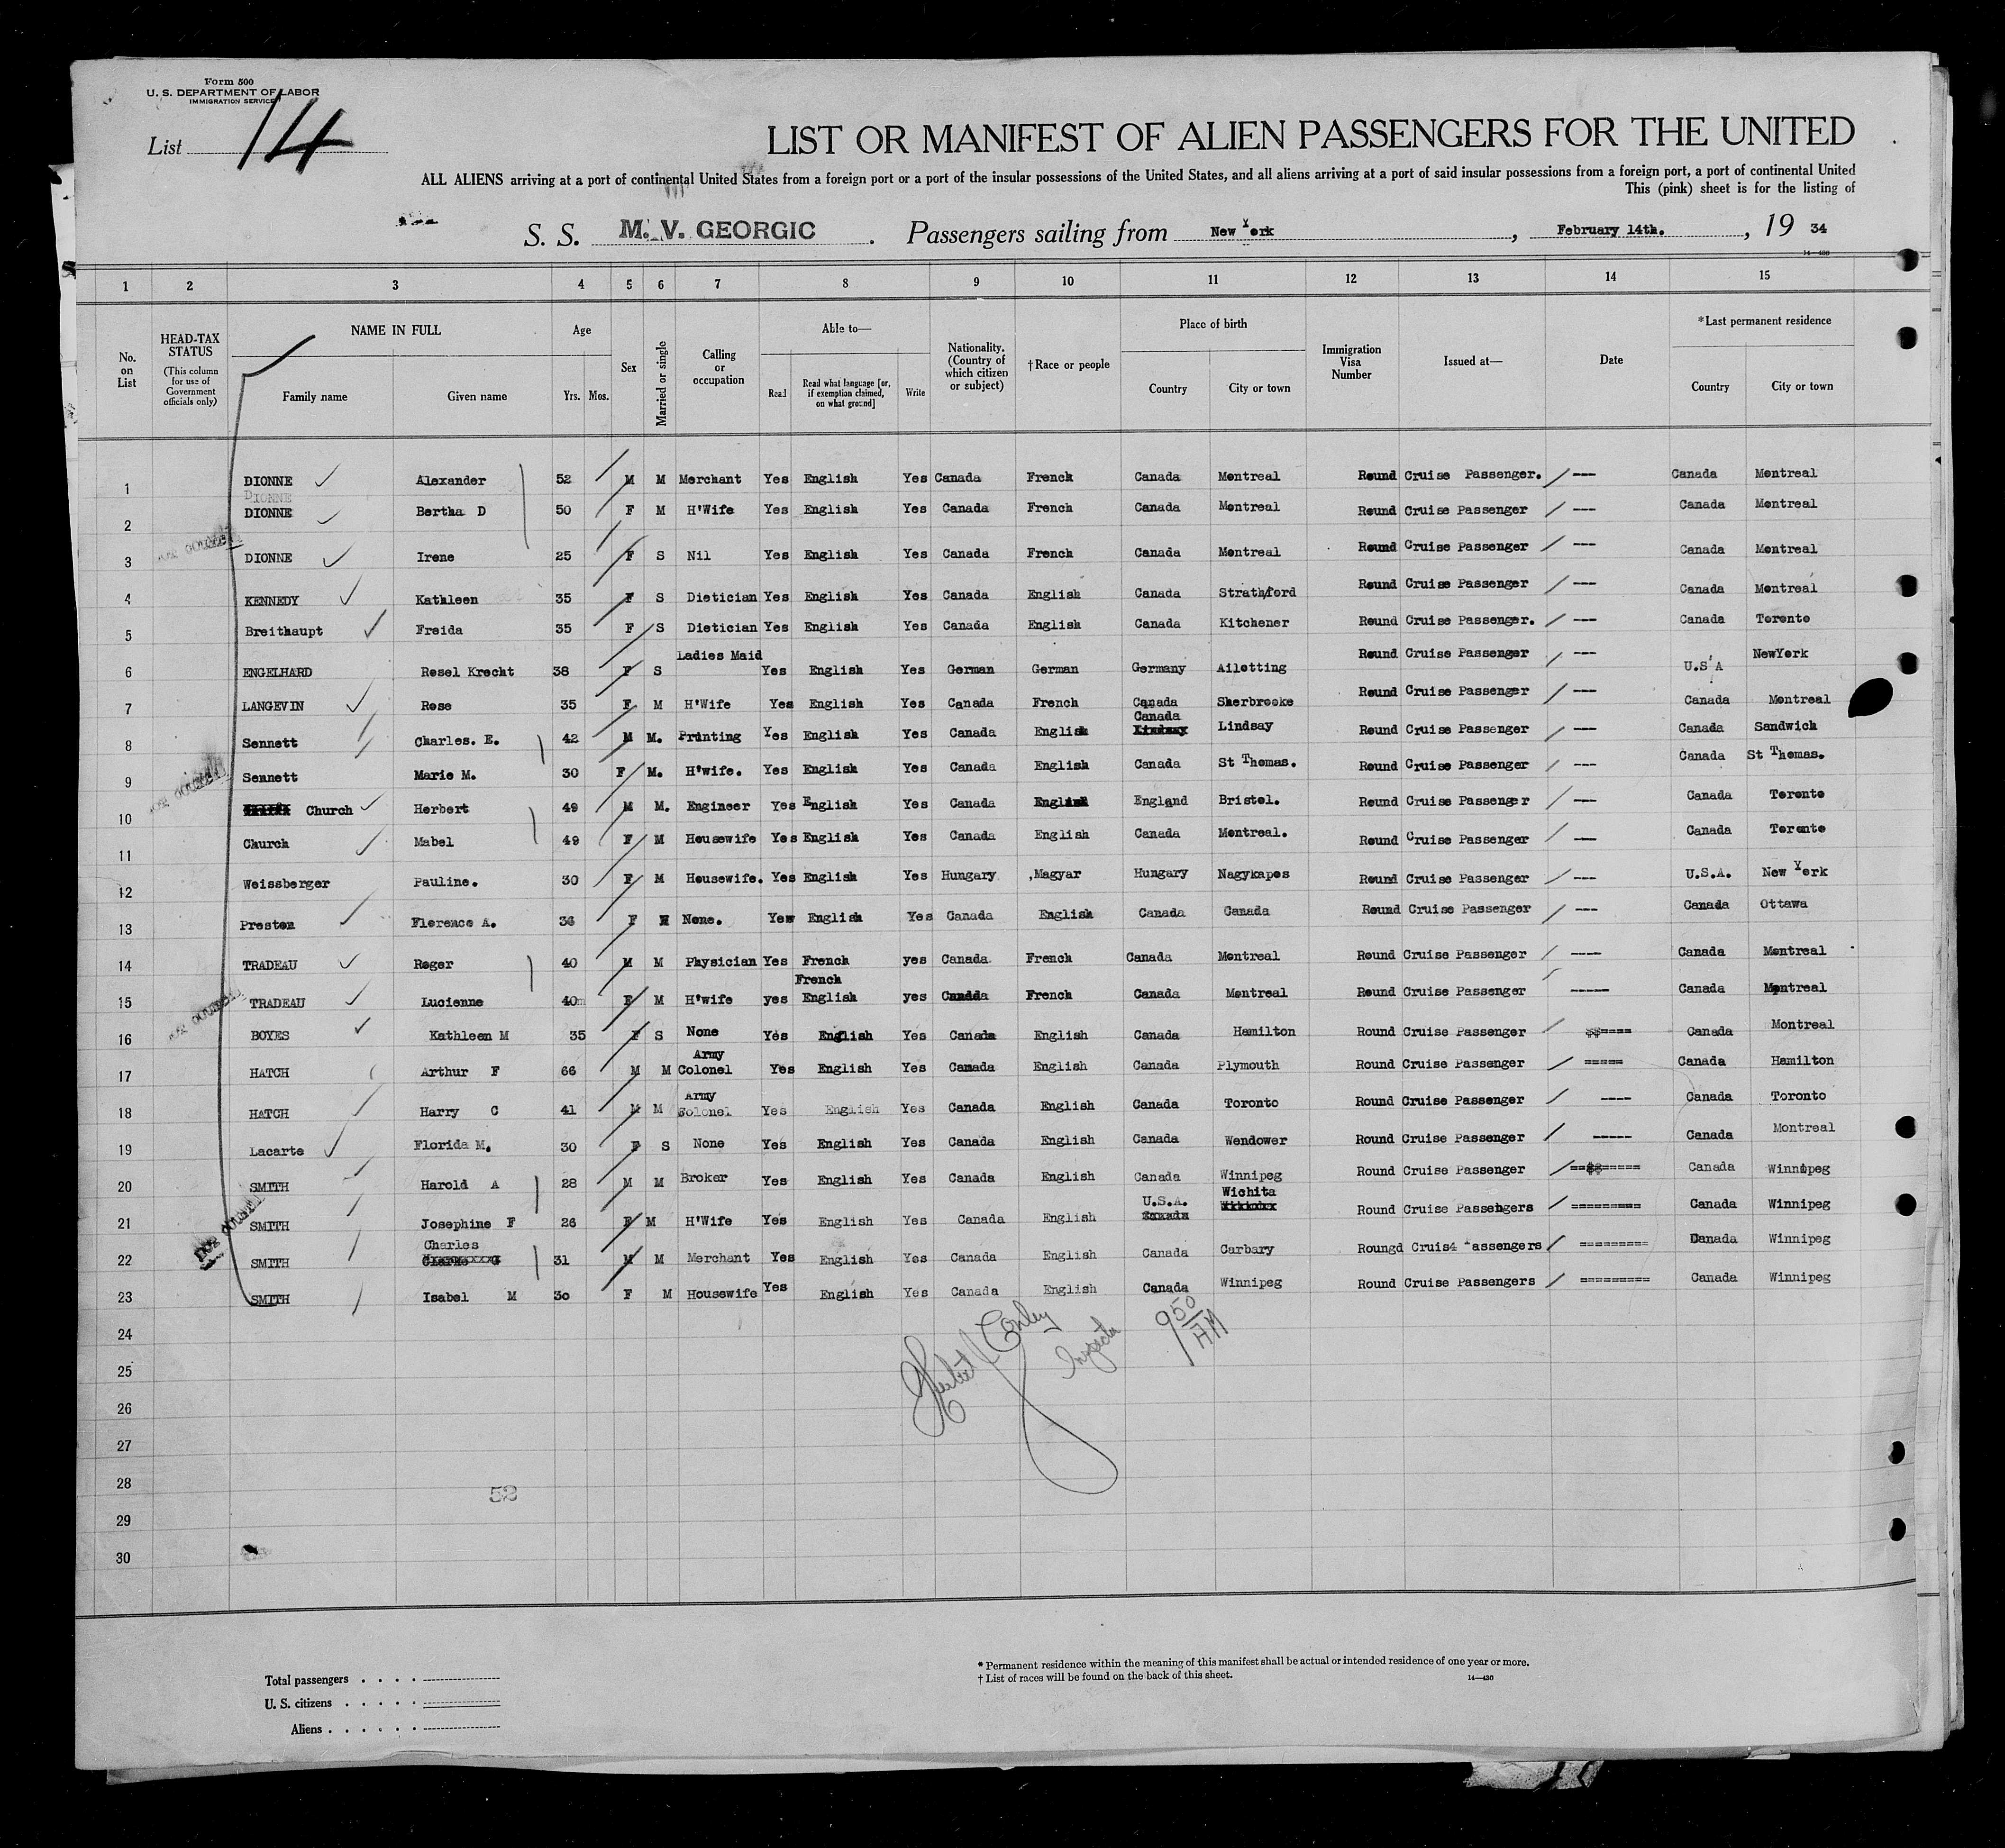 Form 500
U. S. DEPARTMENT OF LABOR
IMMIGRATION SERVICE
List 14
LIST OR MANIFEST OF ALIEN PASSENGERS FOR THE UNITED
ALL ALIENS arriving at a port of continental United States from a foreign port or a port of the insular possessions of the United States, and all aliens arriving at a port of said insular possessions from a foreign port, a port of continental United
This (pink) sheet is for the listing of
S. S. M. V. GEORGIC . Passengers sailing from New York , February 14th. , 19 34
14—430
1 2 3 4 5 6 7 8 9 10 11 12 13 14 15
No. on List
HEAD-TAX STATUS (This column for use of Government officials only)
NAME IN FULL Family name Given name
Age Yrs. Mos.
Sex
Married or single
Calling or occupation
Able to— Read Read what language [or, if exemption claimed, on what ground] Write
Nationality. (Country of which citizen or subject)
†Race or people
Place of birth Country City or town
Immigration Visa Number
Issued at—
Date
*Last permanent residence Country City or town
1 DIONNE Alexander 52 M M Merchant Yes English Yes Canada French Canada Montreal Round Cruise Passenger. --- Canada Montreal
DIONNE
2 DIONNE Bertha D 50 F M H'Wife Yes English Yes Canada French Canada Montreal Round Cruise Passenger --- Canada Montreal
3 DIONNE Irene 25 F S Nil Yes English Yes Canada French Canada Montreal Round Cruise Passenger --- Canada Montreal
4 KENNEDY Kathleen 35 F S Dietician Yes English Yes Canada English Canada Strathford Round Cruise Passenger --- Canada Montreal
5 Breithaupt Freida 35 F S Dietician Yes English Yes Canada English Canada Kitchener Round Cruise Passenger. --- Canada Toronto
6 ENGELHARD Resel Krecht 38 F S Ladies Maid Yes English Yes German German Germany Ailetting Round Cruise Passenger --- U.S.A NewYork
7 LANGEVIN Rose 35 F M H'Wife Yes English Yes Canada French Canada Sherbrooke Round Cruise Passenger --- Canada Montreal
8 Sennett Charles. E. 42 M M. Printing Yes English Yes Canada English Canada Lindsay Lindsay Round Cruise Passenger --- Canada Sandwich
9 Sennett Marie M. 30 F M. H'wife. Yes English Yes Canada English Canada St Thomas. Round Cruise Passenger --- Canada St Thomas.
10 Church Herbert 49 M M. Engineer Yes English Yes Canada English England Bristol. Round Cruise Passenger --- Canada Toronto
11 Church Mabel 49 F M Housewife Yes English Yes Canada English Canada Montreal. Round Cruise Passenger --- Canada Toronto
12 Weissberger Pauline. 30 F M Housewife. Yes English Yes Hungary Magyar Hungary Nagykapos Round Cruise Passenger --- U.S.A. New York
13 Preston Florence A. 36 F M None. Yes English Yes Canada English Canada Canada Round Cruise Passenger --- Canada Ottawa
14 TRADEAU Roger 40 M M Physician Yes French yes Canada French Canada Montreal Round Cruise Passenger ---- Canada Montreal
15 TRADEAU Lucienne 40m F M H'wife yes French English yes Canada French Canada Montreal Round Cruise Passenger ----- Canada Montreal
16 BOYES Kathleen M 35 F S None Yes English Yes Canada English Canada Hamilton Round Cruise Passenger ==== Canada Montreal
17 HATCH Arthur F 66 M M Army Colonel Yes English Yes Canada English Canada Plymouth Round Cruise Passenger ===== Canada Hamilton
18 HATCH Harry C 41 M M Army Colonel Yes English Yes Canada English Canada Toronto Round Cruise Passenger ---- Canada Toronto
19 Lacarte Florida M. 30 F S None Yes English Yes Canada English Canada Wendower Round Cruise Passenger ----- Canada Montreal
20 SMITH Harold A 28 M M Broker Yes English Yes Canada English Canada Winnipeg Round Cruise Passenger ======== Canada Winnipeg
21 SMITH Josephine F 26 F M H'Wife Yes English Yes Canada English U.S.A. Canada Wichita Round Cruise Passengers ========= Canada Winnipeg
22 SMITH Charles 31 M M Merchant Yes English Yes Canada English Canada Carbary Roungd Cruis4 Passengers ========= Canada Winnipeg
23 SMITH Isabel M 30 F M Housewife Yes English Yes Canada English Canada Winnipeg Round Cruise Passengers ========= Canada Winnipeg
24
Conley Inspector 9 50 AM
25
26
27
28
52
29
30
Total passengers . . . .
U. S. citizens . . . . .
Aliens . . . . . .
* Permanent residence within the meaning of this manifest shall be actual or intended residence of one year or more.
† List of races will be found on the back of this sheet. 14—430